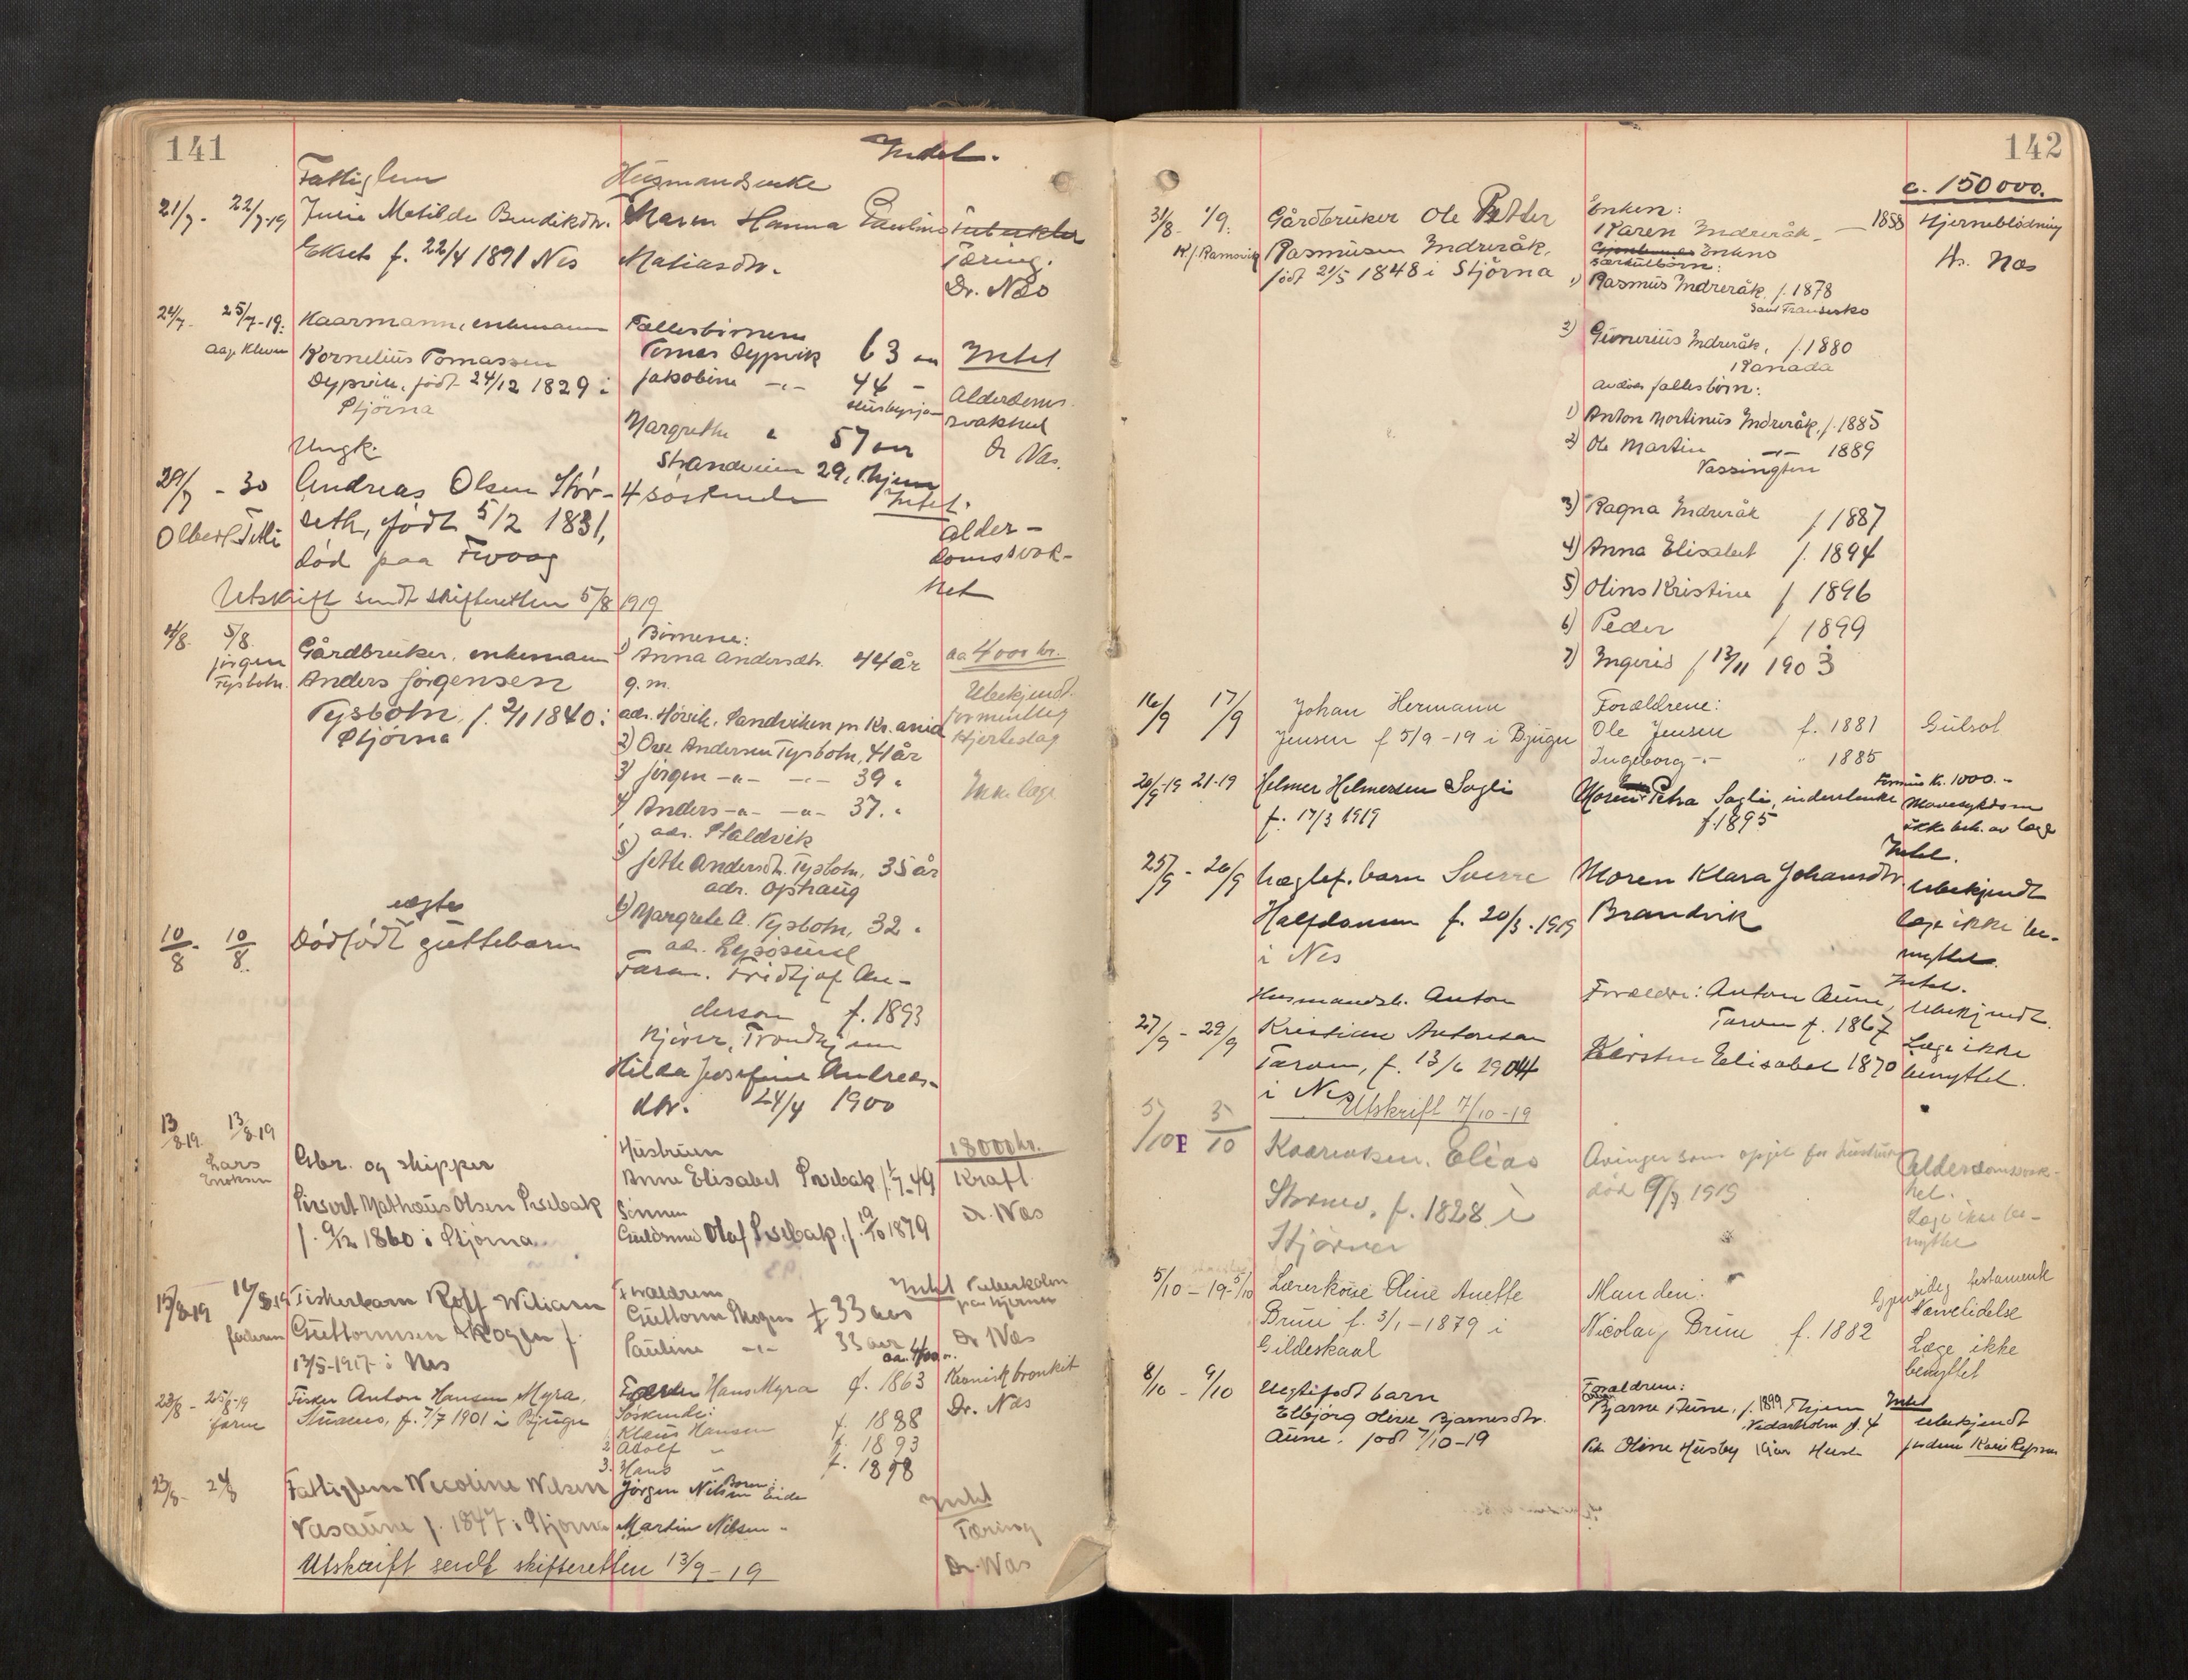 141
Intet.
Fattiglem
Husmandsenke
21/7 - 22/7-19
Julie Matilde Bendikdtr.
Ekset f. 22/4 1891 Nes
Maren Hanna Pauline
Matiasdtr.
Tæring.
Dr. Næs
24/7 - 25/7-19.
Aag. Kleven
Kaarmann, enkemann
Kornelius Tomassen
Dypvik, født 24/12 1829 i
Stjørna
Fællesbørnene
Tomas Dypvik 63 aar
Jakobine -"- 44 -
Husbysjøen
Margrethe " 57 aar
Strandveien 29, Thjem
Intet
Alderdoms-
svakhet
Dr Næs.
Ungk.
29/7 - 30
Andreas Olsen Stør-
seth, født 5/2 1831,
død paa
4 søskende
Intet.
Alder-
domssvak-
het
Utskrift sendt skifteretten 5/8 1919
4/8. 5/8.
Jørgen
Tysbotn.
Gårdbruker, enkemann
Anders Jørgensen
Tysbotn, f. 2/1 1840 i
Stjørna
Børnene:
1) Anna Andersdtr. 44 år
g. m.
adr. Høvik, Sandviken pr Kr.ania
2) Ove Andersen Tysbotn, 41 år
3) Jørgen -"- -"- 39 "
4) Anders -"- -"- 37. "
adr. Staldvik
5) Jette Andersdtr. Tysbotn, 35 år
adr. Ophaug
6) Margrete A. Tysbotn, 32 "
adr. Lysøsund
ca 4000 kr.
Ubekjendt.
formentlig
Hjerteslag
Ikke læge
10/8 - 10/8.
uegte
Dødfødt guttebarn
Faren. Fridtjof An-
derson f. 1893
Kjører, Trondhjem
Hilda Josefine Andreas-
dtr. 24/4 1900
13/8 19. 13/8 19
Lars
Eriksen
Gbr. og skipper
Sivert Mathæus Olsen Selbak
f. 9/12 1860 i Stjørna
Hustruen
Anne Elisabet Selbak f. 1/7-49
Sønnen
Olaf Selbak, f. 19/10 1879
18000 kr.
Kræft
Dr. Næs
15/8-19 16/8 19
faderen
Fiskerbarn Rolf Wiliam
Guttormsen Skogen f.
13/5-1917 i Nes
Forældrene
Guttorm Skogen f 33 aar
Pauline -"- 33 aar
Intet
Tuberkolose
paa hjernen
Dr Næs
23/8 - 25/8-19
faren
Fisker Anton Hansen Myra,
f. 7/7 1901 i Bjugn
Hans Myra f. 1863
Søskende:
Klaus Hansen f. 1888
2 Adolf " f. 1893
3. Hans " f. 1898
ca. 400 kr.
Kronisk bronkit
Dr. Næs
23/8 - 24/8
Fattiglem Nicoline Nilsen
Vasaune f. 1847 i Stjørna
Børn:
Jørgen Nilsen Eide
Martin Nilsen -
Intet
Tæring
Dr. Næs
Utskrift sendt skifteretten 13/9-19
142
c. 150 000.
31/8. 1/9.
K. f. Ramsvig
Gårdbruker Ole Petter
Rasmusen Indreråk,
født 21/5 1848 i Stjørna
Enken:
Karen Indreråk - 1855
Enkens
særkulbørn:
1) Rasmus Indreråk, f. 1878
San Fransisko
2) Gunerius Indreråk, f. 1880
Kanada
andres fællesbørn:
1) Anton Mortinus Indreråk, f. 1885
2) Ole Martin -"- 1889
Vassington
3) Ragna Indreråk f 1887
4) Anna Elisabet f. 1894
5) Oline Kristine f 1896
6) Peder f 1899
7) Ingerid f 13/11 1903
Hjerneblødning
Dr. Næs
16/9 17/9
Johan Hermann
Jensen f 5/9-19 i Bjugn
Forældrene:
Ole Jensen f. 1881
Ingeborg -"- " 1885
Gulsot
20/9-19 21-19
Helmer Helmersen Sagli
f. 17/3 1919
Moren Petra Sagli, inderstenke
f. 1895
Formue Kr. 1000.-
Mavesykdom
ikke beh. av læge
25/9 - 26/9
Uægtef. barn Sverre
Halfdansen f. 20/3-1919
i Nes
Moren Klara Johansdtr
Brandvik
Intet.
Ubekjendt
læge ikke be-
nyttet.
27/9 - 29/9
Husmandsb. Anton
Kristian Antonsen
Tarven, f. 13/6 1904
i Nes
Utskrift 7/10-19
Forældre: Anton Aune,
Tarven f. 1867
Kirsten Elisabet 1870
Intet.
Ubekjendt.
Læge ikke
benyttet.
5/10 5/10
Kaarenksm. Elias
f. 1828 i
Stjørnen
Arvinger som opgit for hustruen
død 9/9 1919
Alderdomssvak-
het.
Læge ikke be-
nyttet
5/10-19 5/10
Lærerkone Oline Anette
Brun f. 3/1-1879 i
Gildeskaal
Manden:
Nicolay Brun f. 1882
Gjensidig testamente
Nervelidelse
Læge ikke
benyttet
8/10 - 9/10
Uegtefødt barn
Elbjørg Olive Bjarnesdtr.
Aune, født 7/10-19
Forældrene:
Bjarne Aune, f. 1899 Thjem
Nidarholm g. 4
Oline Husby 19 aar
Intet
ubekjendt